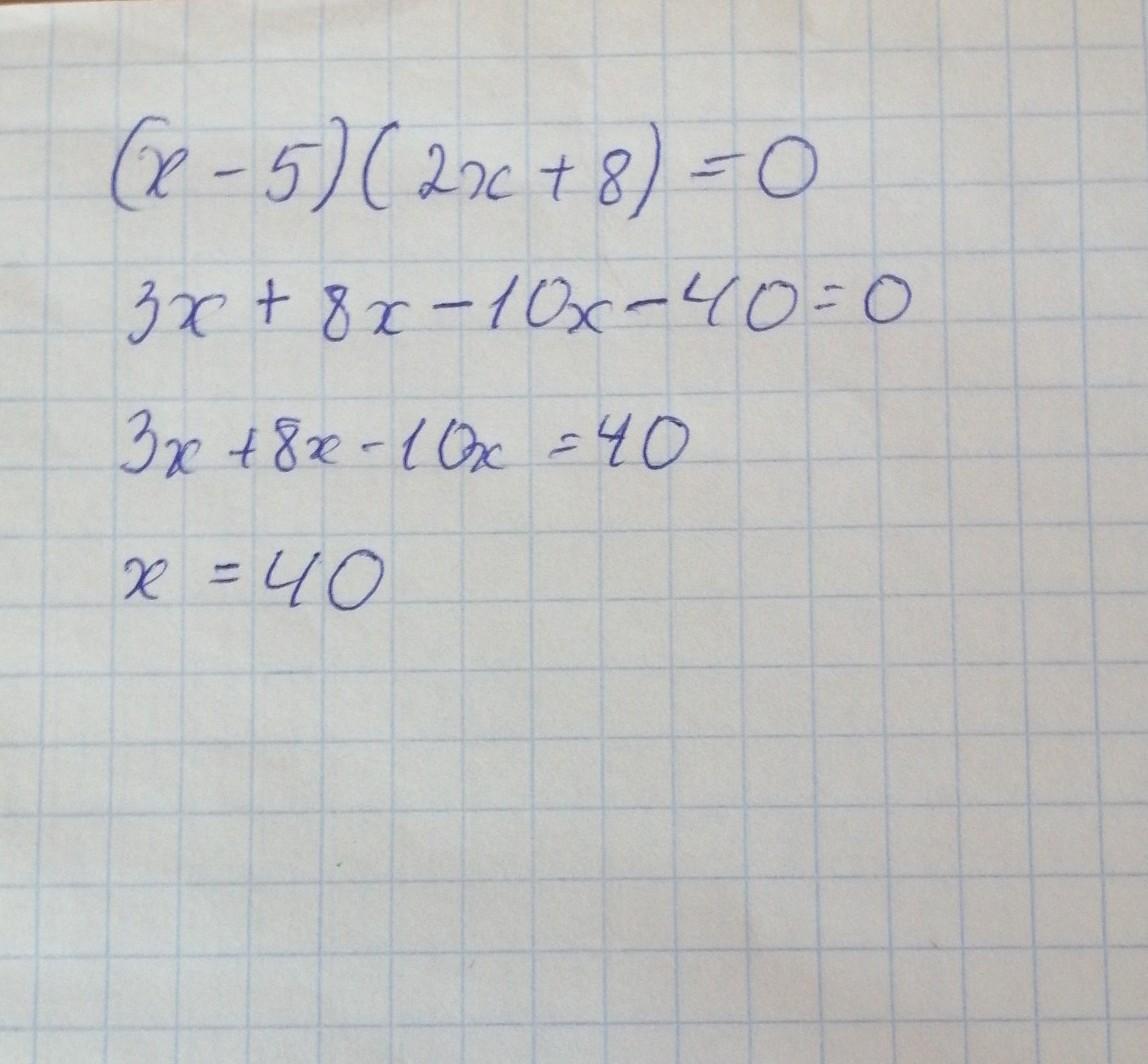 (x - 5)(2x + 8) = 0
3x + 8x - 10x - 40 = 0
3x + 8x - 10x = 40
x = 40